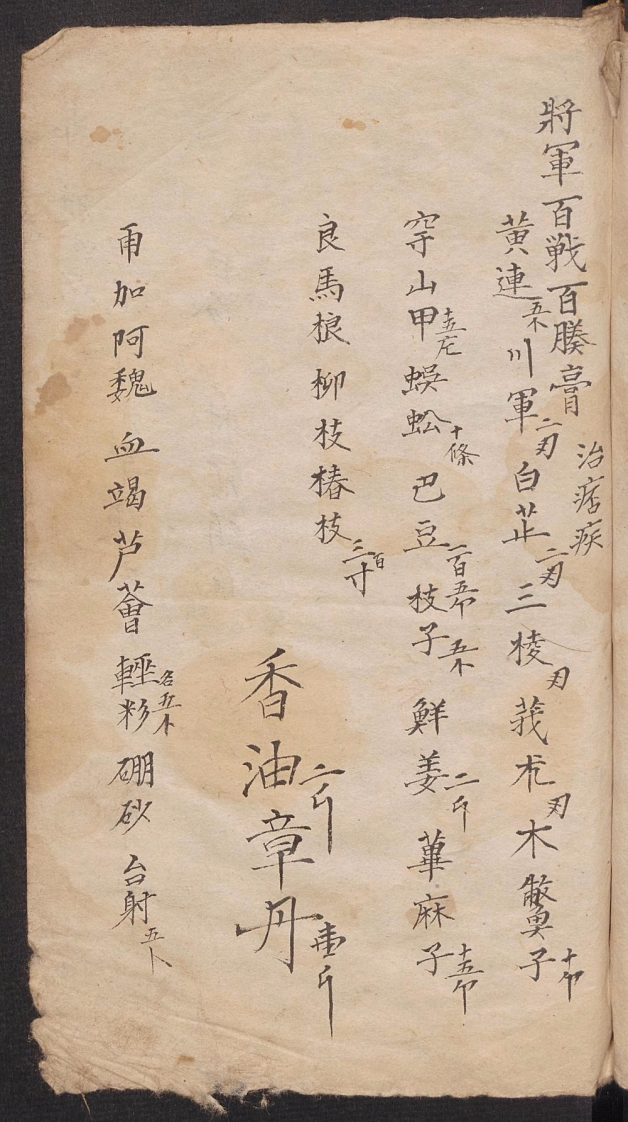 將軍百戦百勝膏 治痞疾
黄連 五 川軍 二刃 白芷 二刃 三棱 刃 莪朮 刃 木鱉子 十
穿山甲 十五 蜈蚣 十條 巴豆 一百五 枝子 五 鮮姜 二斤 萆麻子 十五
良馬根柳枝椿枝 三百寸
香油 二斤 章丹 壹斤
再加阿魏血竭芦薈輕粉 各五 硼砂 台射 五